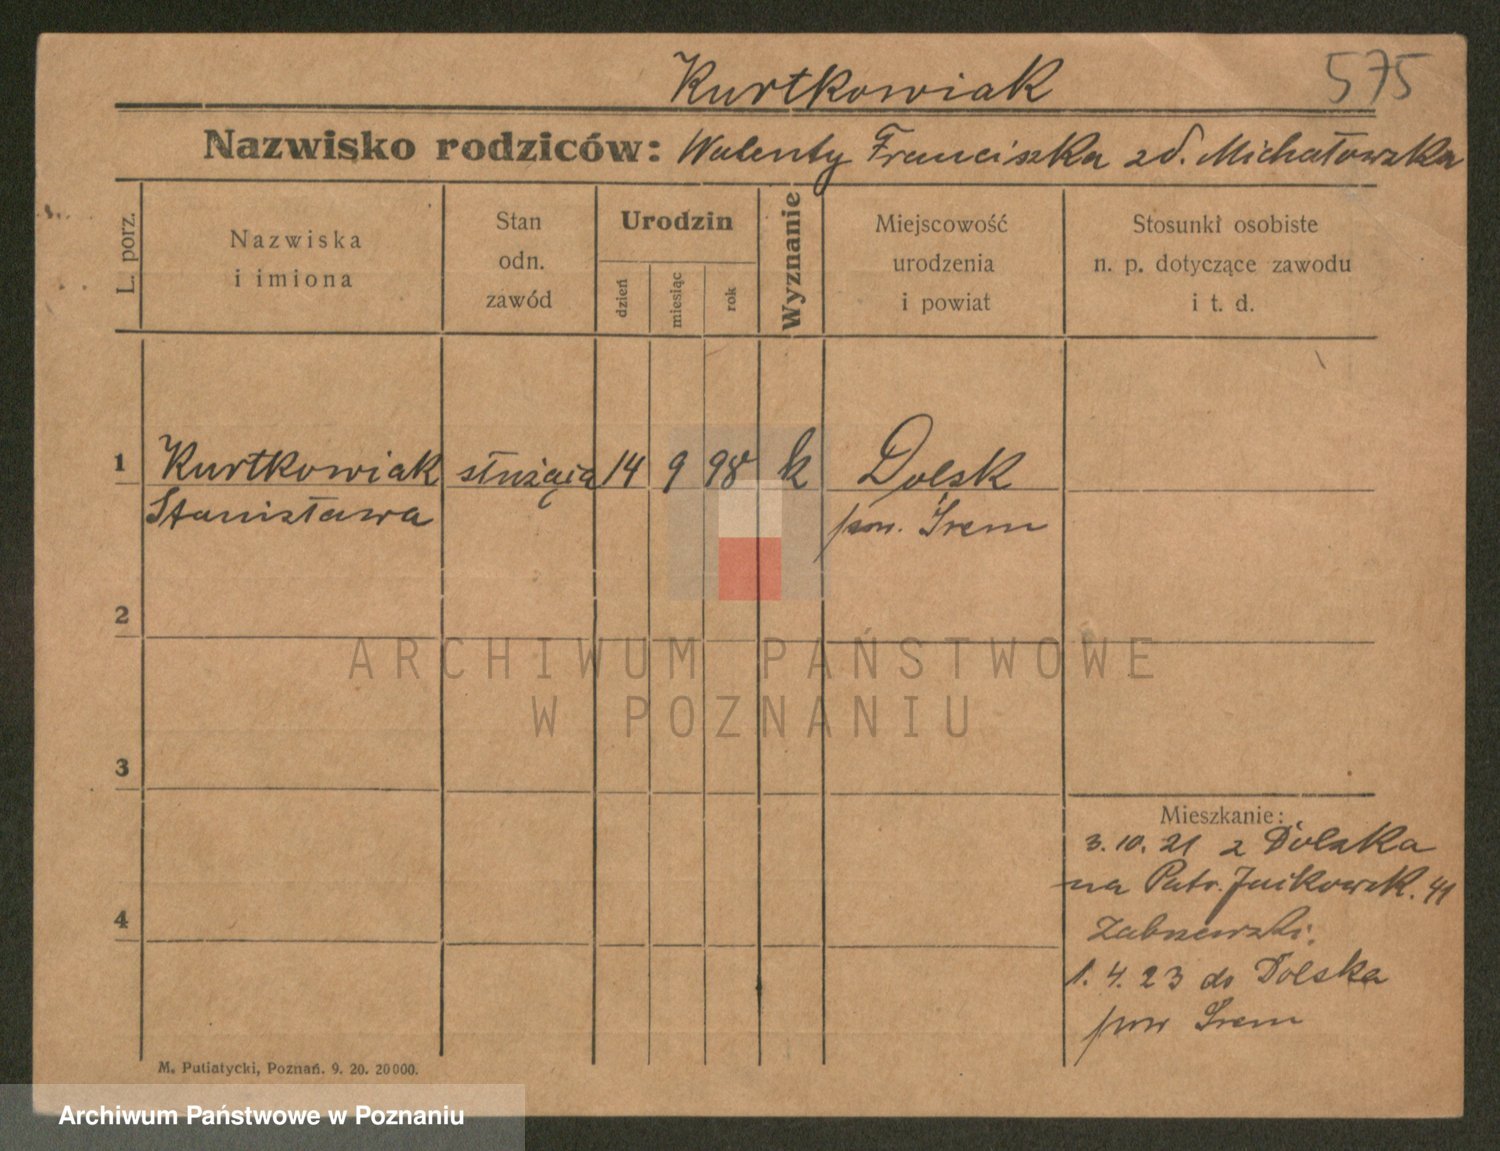 Kurtkowiak 575
Nazwisko rodziców: Walenty Franciszka zd. Michałowska
L. porz.
Nazwiska
i imiona
Stan
odn.
zawód
Urodzin
dzień
miesiąc
rok
Wyznanie
Miejscowość
urodzenia
i powiat
Stosunki osobiste
n. p. dotyczące zawodu
i t. d.
1 Kurtkowiak służąca 14 9 98 k Dolsk
Stanisława pow. Śrem
2
3
4
Mieszkanie:
3. 10. 21 z Dolska
na Patr. Jackowsk. 41
1. 4. 23 do Dolska
pow Śrem
M. Putiatycki, Poznań. 9. 20. 20000.
ARCHIWUM PAŃSTWOWE
W POZNANIU
Archiwum Państwowe w Poznaniu